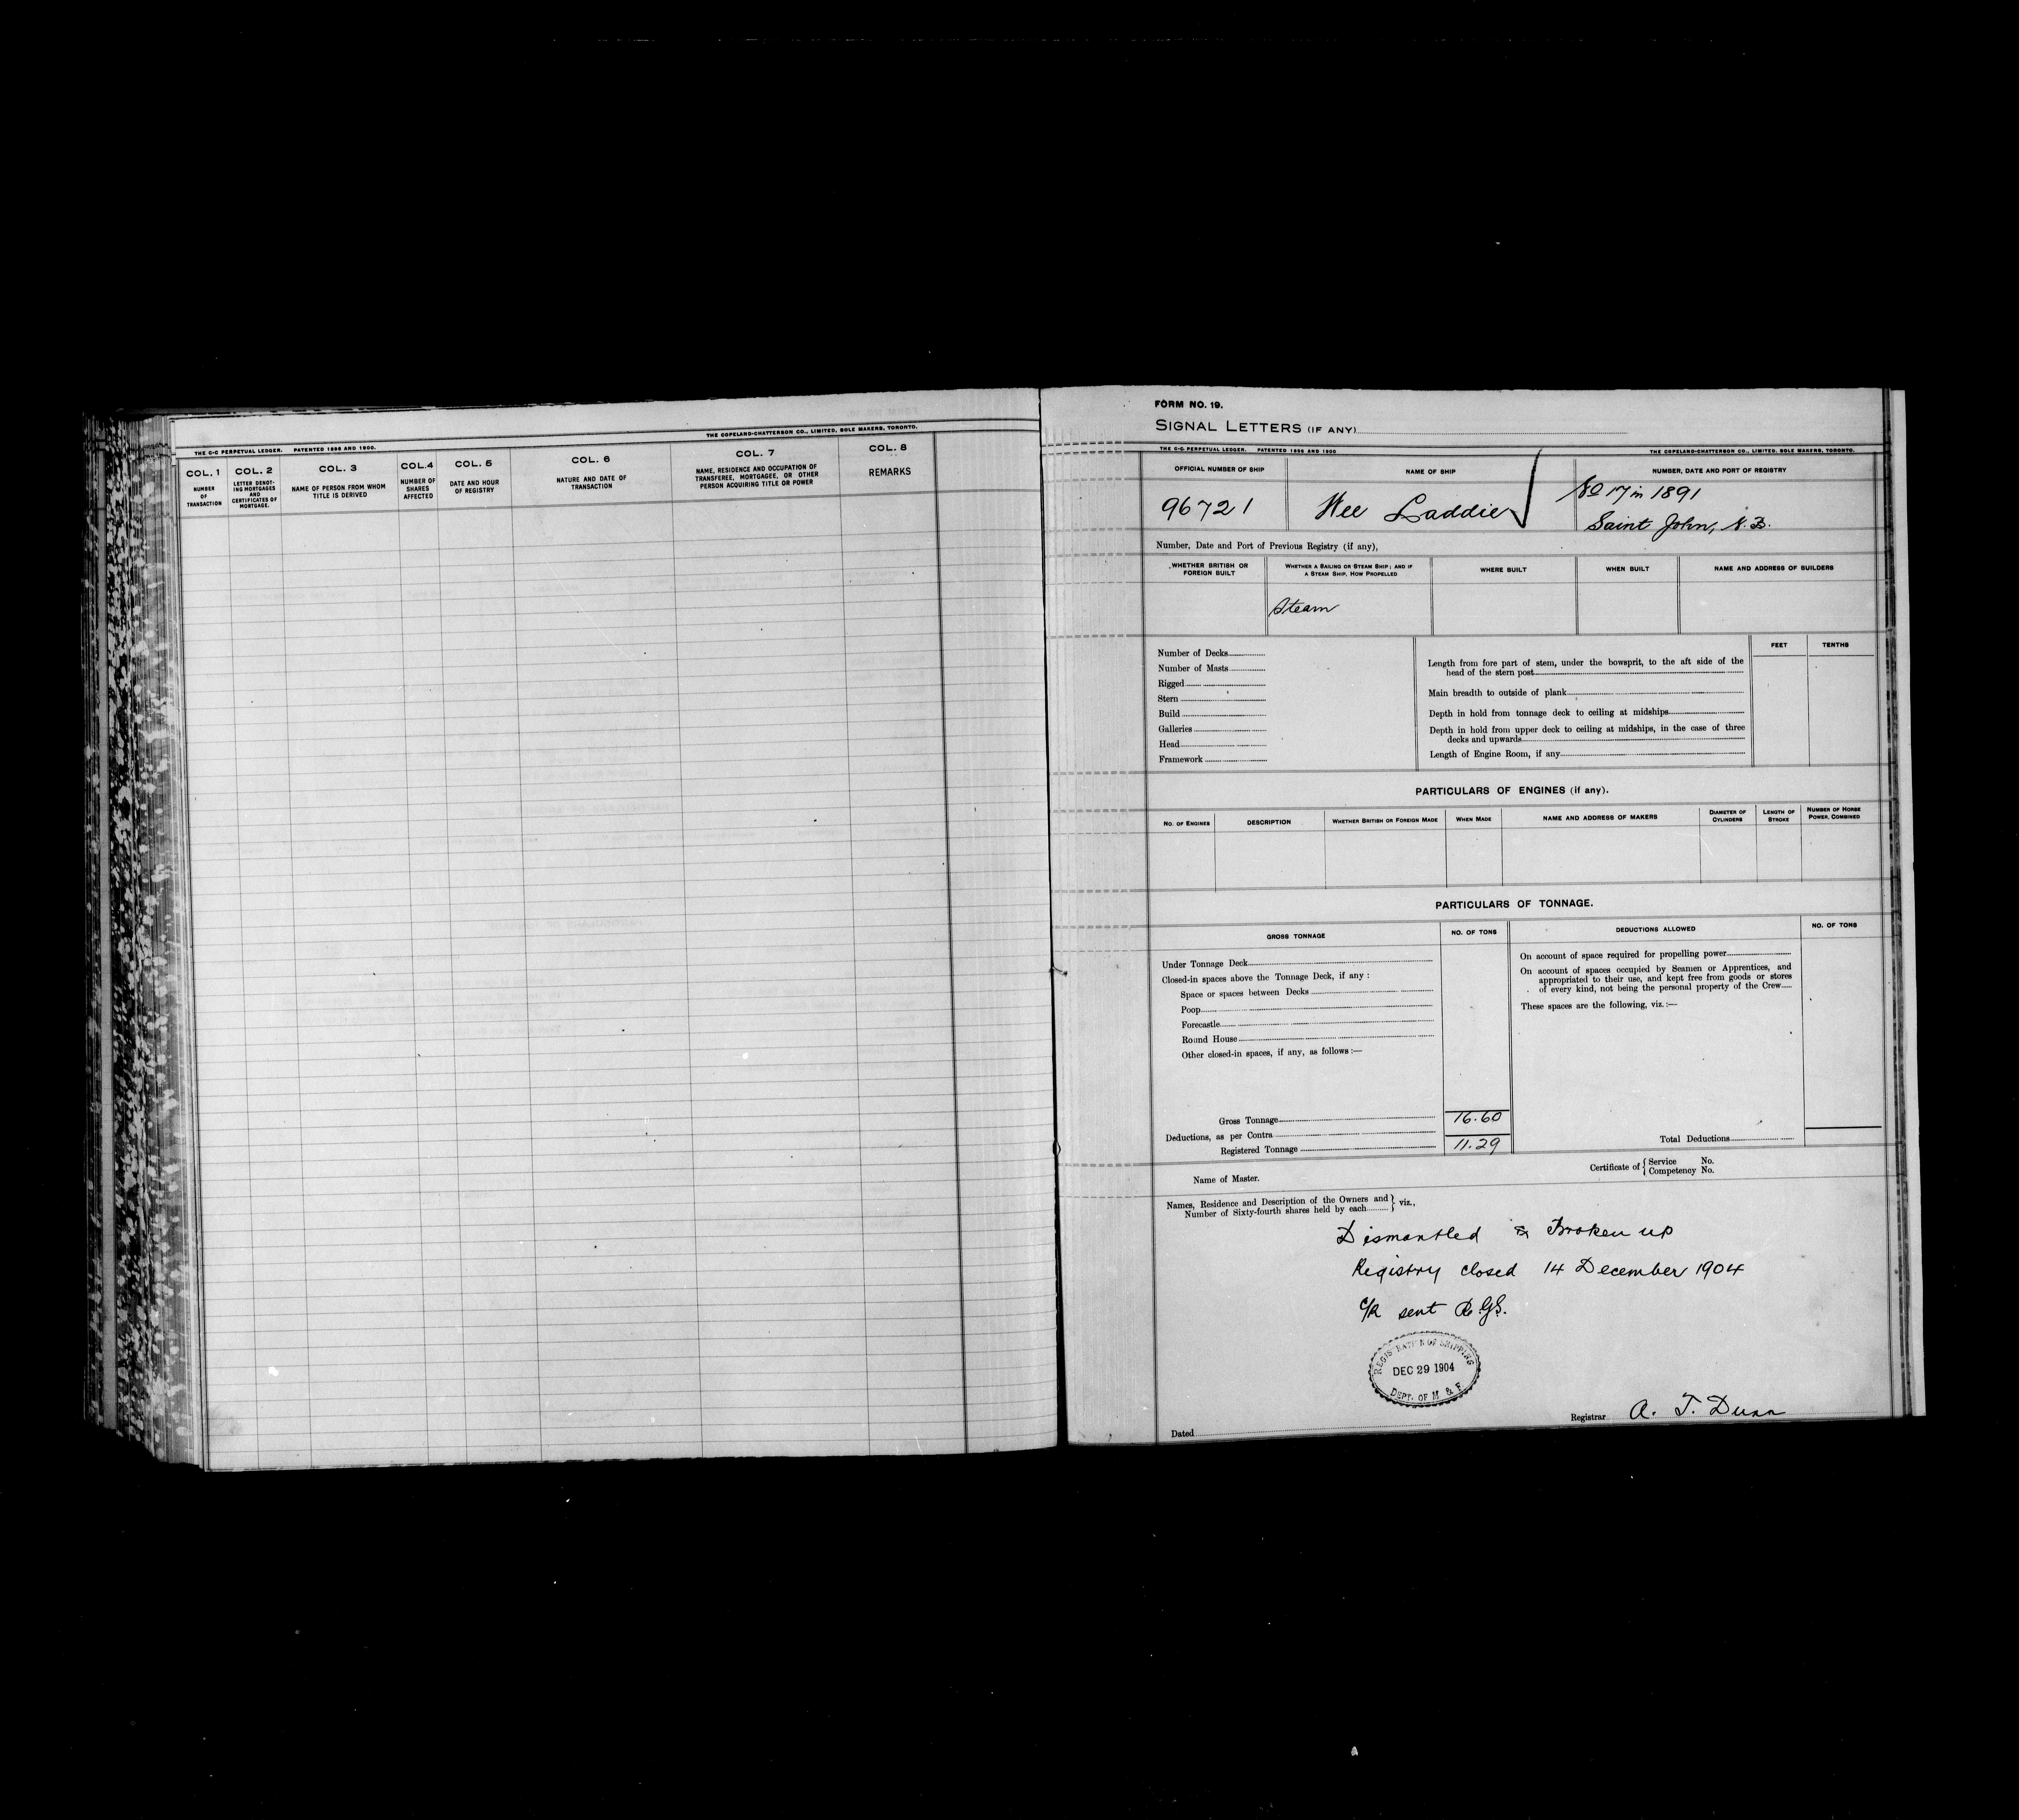 THE C-C PERPETUAL LEDGER. PATENTED 1896 AND 1900.
THE COPELAND-CHATTERSON CO., LIMITED, SOLE MAKERS, TORONTO.
COL. 1
NUMBER
OF
TRANSACTION
COL. 2
LETTER DENOT-
ING MORTGAGES
AND
CERTIFICATES OF
MORTGAGE.
COL. 3
NAME OF PERSON FROM WHOM
TITLE IS DERIVED
COL. 4
NUMBER OF
SHARES
AFFECTED
COL. 5
DATE AND HOUR
OF REGISTRY
COL. 6
NATURE AND DATE OF
TRANSACTION
COL. 7
NAME, RESIDENCE AND OCCUPATION OF
TRANSFEREE, MORTGAGEE, OR OTHER
PERSON ACQUIRING TITLE OR POWER
COL. 8
REMARKS
FORM NO. 19.
SIGNAL LETTERS (IF ANY)
THE C-C PERPETUAL LEDGER. PATENTED 1896 AND 1900
THE COPELAND-CHATTERSON CO., LIMITED, SOLE MAKERS, TORONTO.
OFFICIAL NUMBER OF SHIP
NAME OF SHIP
NUMBER, DATE AND PORT OF REGISTRY
96721
Wee Laddie
No 17 in 1891
Saint John, N.B.
Number, Date and Port of Previous Registry (if any),
WHETHER BRITISH OR
FOREIGN BUILT
WHETHER A SAILING OR STEAM SHIP; AND IF
A STEAM SHIP, HOW PROPELLED
WHERE BUILT
WHEN BUILT
NAME AND ADDRESS OF BUILDERS
Steam
Number of Decks
Number of Masts
Rigged
Stern
Build
Galleries
Head
Framework
FEET
TENTHS
Length from fore part of stem, under the bowsprit, to the aft side of the
head of the stern post
Main breadth to outside of plank
Depth in hold from tonnage deck to ceiling at midships
Depth in hold from upper deck to ceiling at midships, in the case of three
decks and upwards
Length of Engine Room, if any
PARTICULARS OF ENGINES (if any).
NO. OF ENGINES
DESCRIPTION
WHETHER BRITISH OR FOREIGN MADE
WHEN MADE
NAME AND ADDRESS OF MAKERS
DIAMETER OF
CYLINDERS
LENGTH OF
STROKE
NUMBER OF HORSE
POWER, COMBINED
PARTICULARS OF TONNAGE.
GROSS TONNAGE
NO. OF TONS
DEDUCTIONS ALLOWED
NO. OF TONS
Under Tonnage Deck
Closed-in spaces above the Tonnage Deck, if any :
Space or spaces between Decks
Poop
Forecastle
Round House
Other closed-in spaces, if any, as follows :—
On account of space required for propelling power
On account of spaces occupied by Seamen or Apprentices, and
appropriated to their use, and kept free from goods or stores
of every kind, not being the personal property of the Crew
These spaces are the following, viz.:—
Gross Tonnage 16.60
Deductions, as per Contra
Registered Tonnage 11.29
Total Deductions
Name of Master.
Certificate of { Service No.
Competency No.
Names, Residence and Description of the Owners and } viz.,
Number of Sixty-fourth shares held by each
Dismantled & Broken up
Registry closed 14 December 1904
C/R sent R.G.S.
REGISTRATION OF SHIPPING
DEC 29 1904
DEPT. OF M & F
Registrar A. T. Dunn
Dated